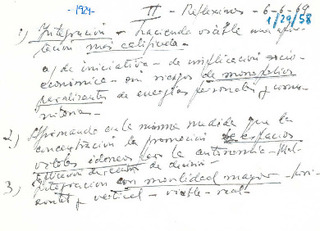 -1924- II - Reflexiones - 6-6-69
1/29/58
1) Integración - haciendo visible una
más calificada -
a) de iniciativa - de implicación socio-
económica - sin riesgos de monopolios
paralizantes de energías personales y comu-
2.) Afirmando en la misma medida que la
concentración la promoción de espacios
vitales idóneos para la autonomía -
3.) Integración con movilidad mayor - hori-
zontal y vertical - visible - real -